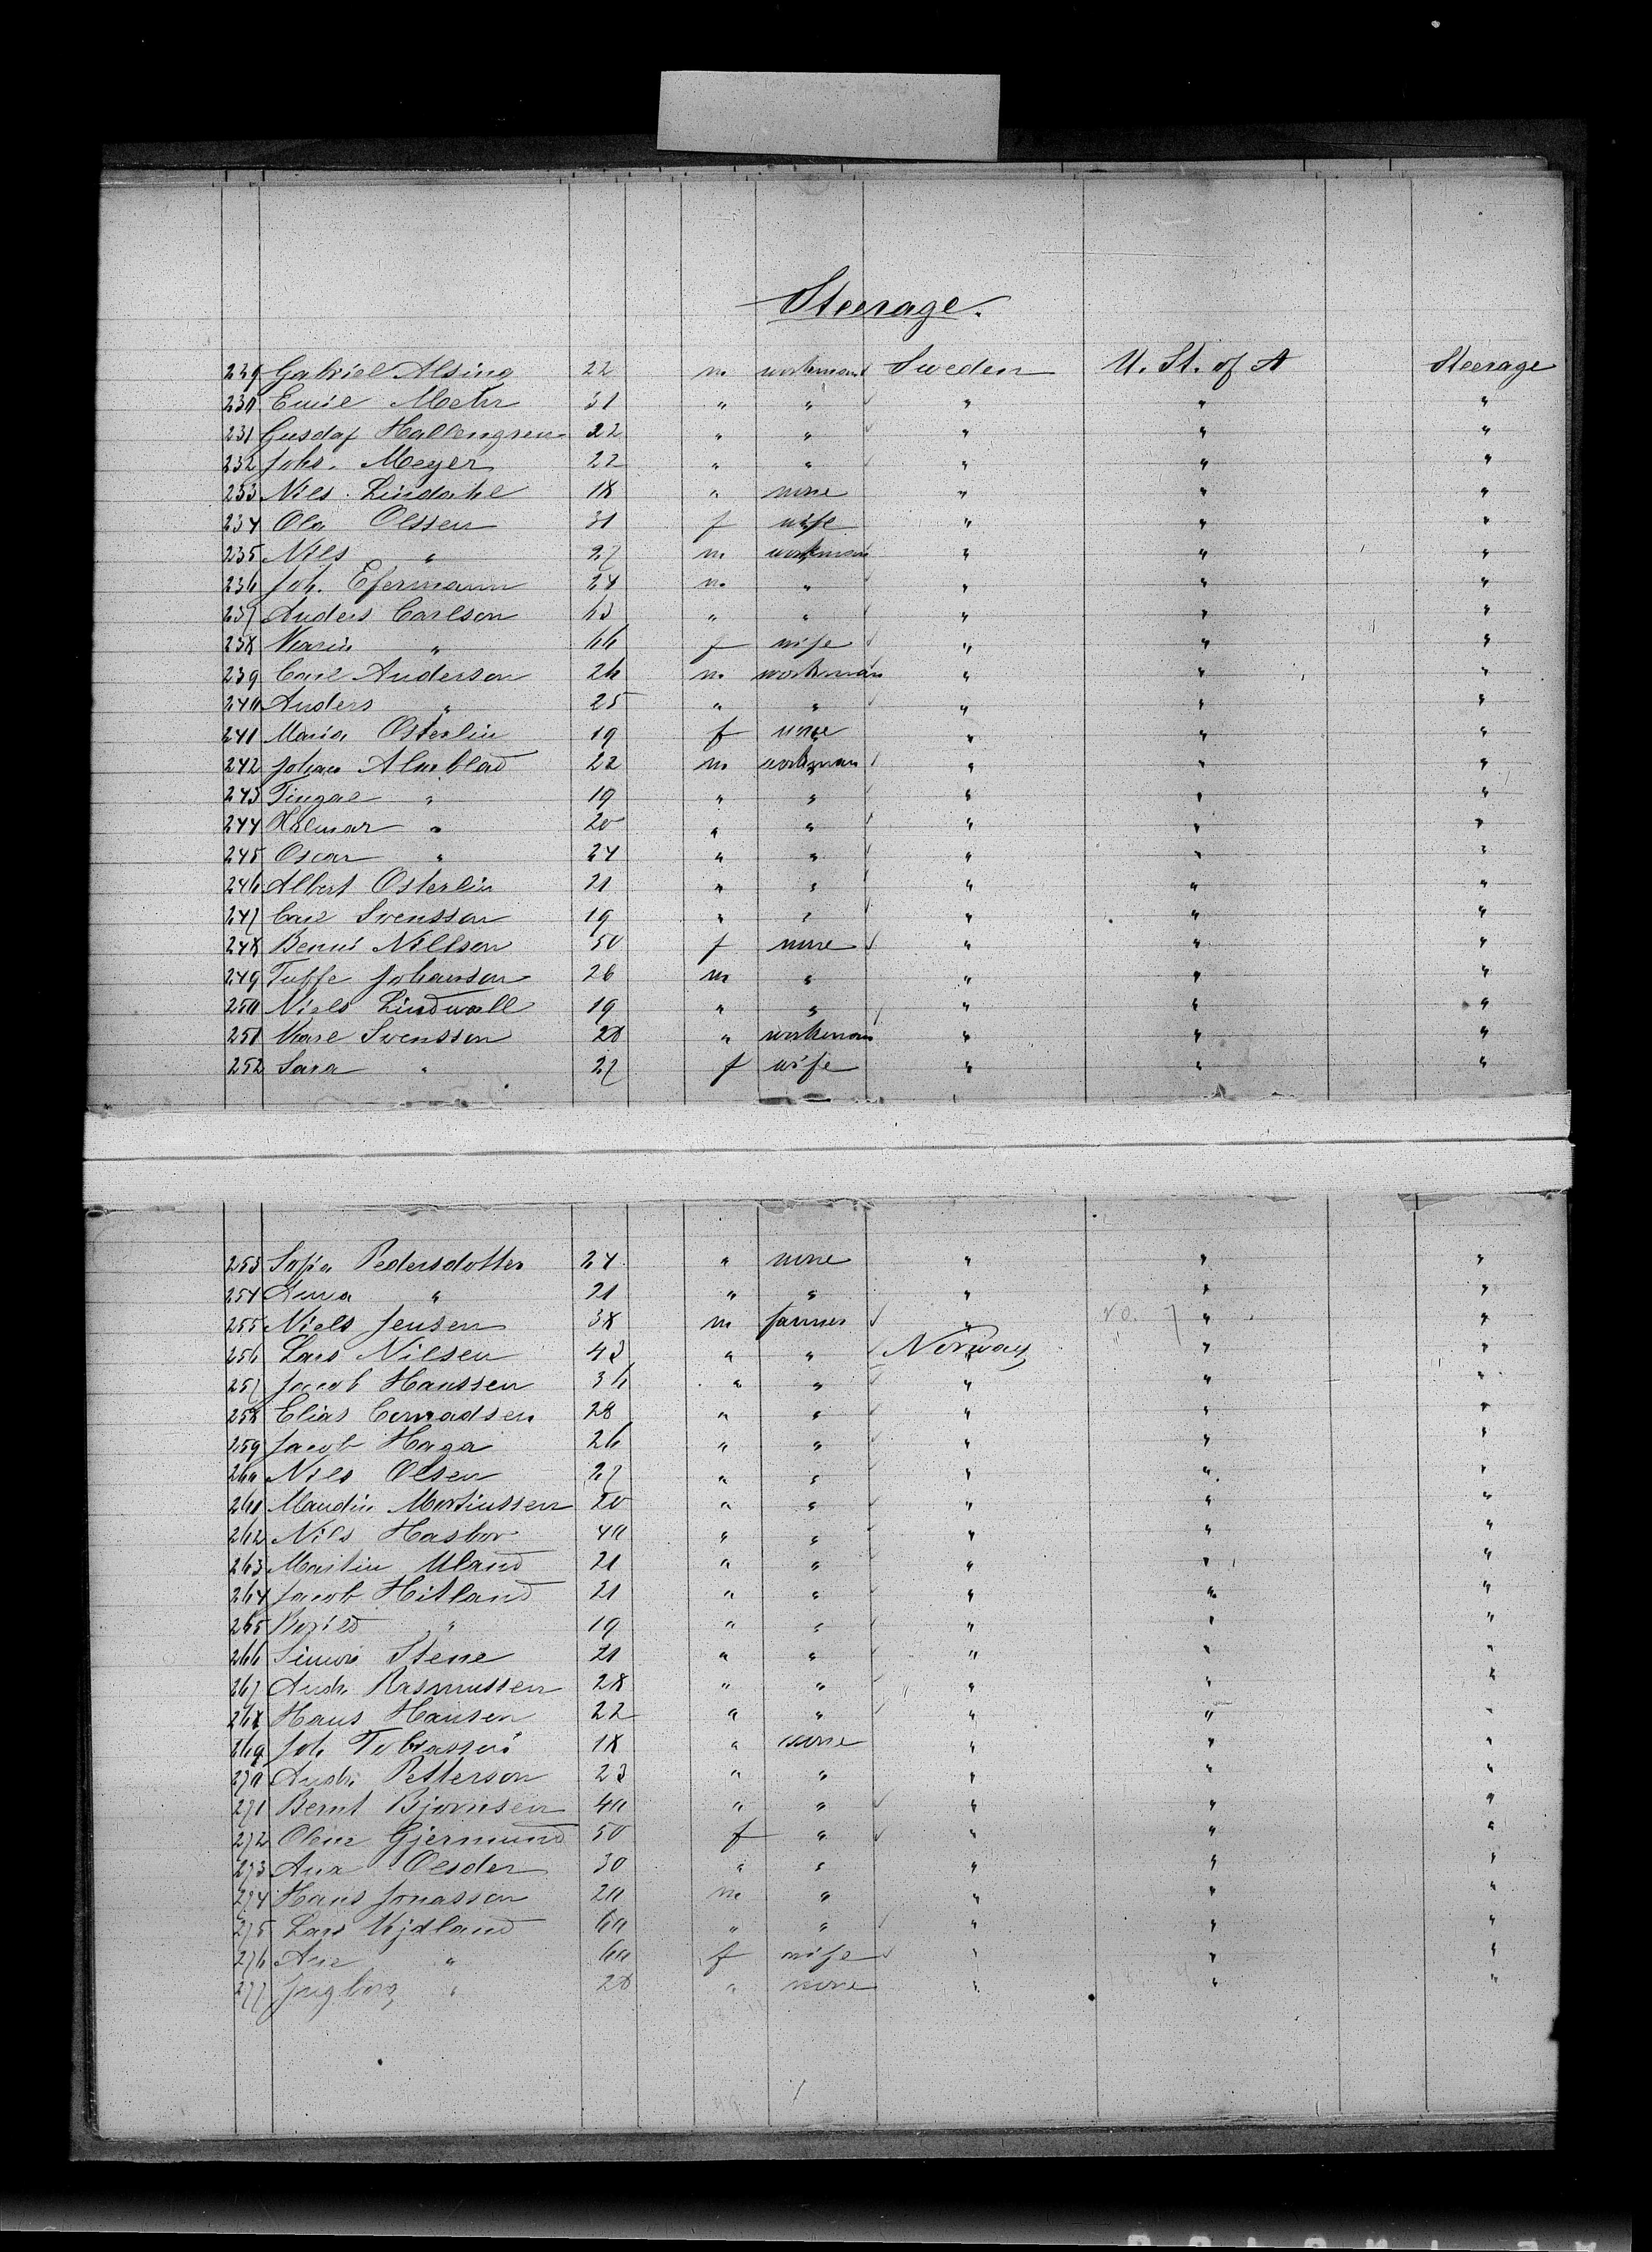 Steerage.
229 Gabriel Alsing 22 m workman Sweden U. St. of A Steerage
230 Emil Mehr 31 " " " " "
231 Gusdaf Hallengren 22 " " " " "
232 Johs. Meyer 22 " " " " "
233 Nils Lindahl 18 " none " " "
234 Ola Olssen 31 f wife " " "
235 Nils " 27 m workman " " "
236 Joh. Efermann 24 m " " " "
237 Anders Carlson 63 " " " " "
238 Karin " 66 f wife " " "
239 Carl Anderson 26 m workman " " "
240 Anders " 25 " " " " "
241 Maria Osterlin 19 f none " " "
242 Johan Almblad 22 m workman " " "
243 " 19 " " " " "
244 Hilmar " 20 " " " " "
245 Oscar " 24 " " " " "
246 Albert Osterlin 21 " " " " "
247 Carl Svensson 19 " " " " "
248 Nillson 50 f none " " "
249 Tuffe Johanson 26 m " " " "
250 Niels Lindwall 19 " " " " "
251 Karl Svensson 28 " workman " " "
252 Sara " 27 f wife " " "
253 Sofia Pedersdotter 24 " none " " "
254 Anna " 21 " " " " "
255 Niels Jensen 38 m farmer " " "
256 Lars Nilsen 43 " " Norway " "
257 Jacob Hanssen 36 " " " " "
258 Elias Conradsen 28 " " " " "
259 Jacob Haga 26 " " " " "
260 Nils Olsen 27 " " " " "
261 Maudin Mortinssen 20 " " " " "
262 Nils Hasbor 40 " " " " "
263 Martin Uland 21 " " " " "
264 Jacob Hitland 21 " " " " "
265 " 19 " " " " "
266 Simon Stene 21 " " " " "
267 Andr. Rasmussen 28 " " " " "
268 Hans Hansen 22 " " " " "
269 Joh Tobiassen 18 " none " " "
270 Andr. Petterson 23 " " " " "
271 Bernt Bjornsen 40 " " " " "
272 Oline Gjermund 50 f " " " "
273 Ana Olsder 30 " " " " "
274 Hans Jonasson 20 m " " " "
275 Lars 60 " " " " "
276 Ane " 60 f wife " " "
277 Ingborg " 28 " none " " "